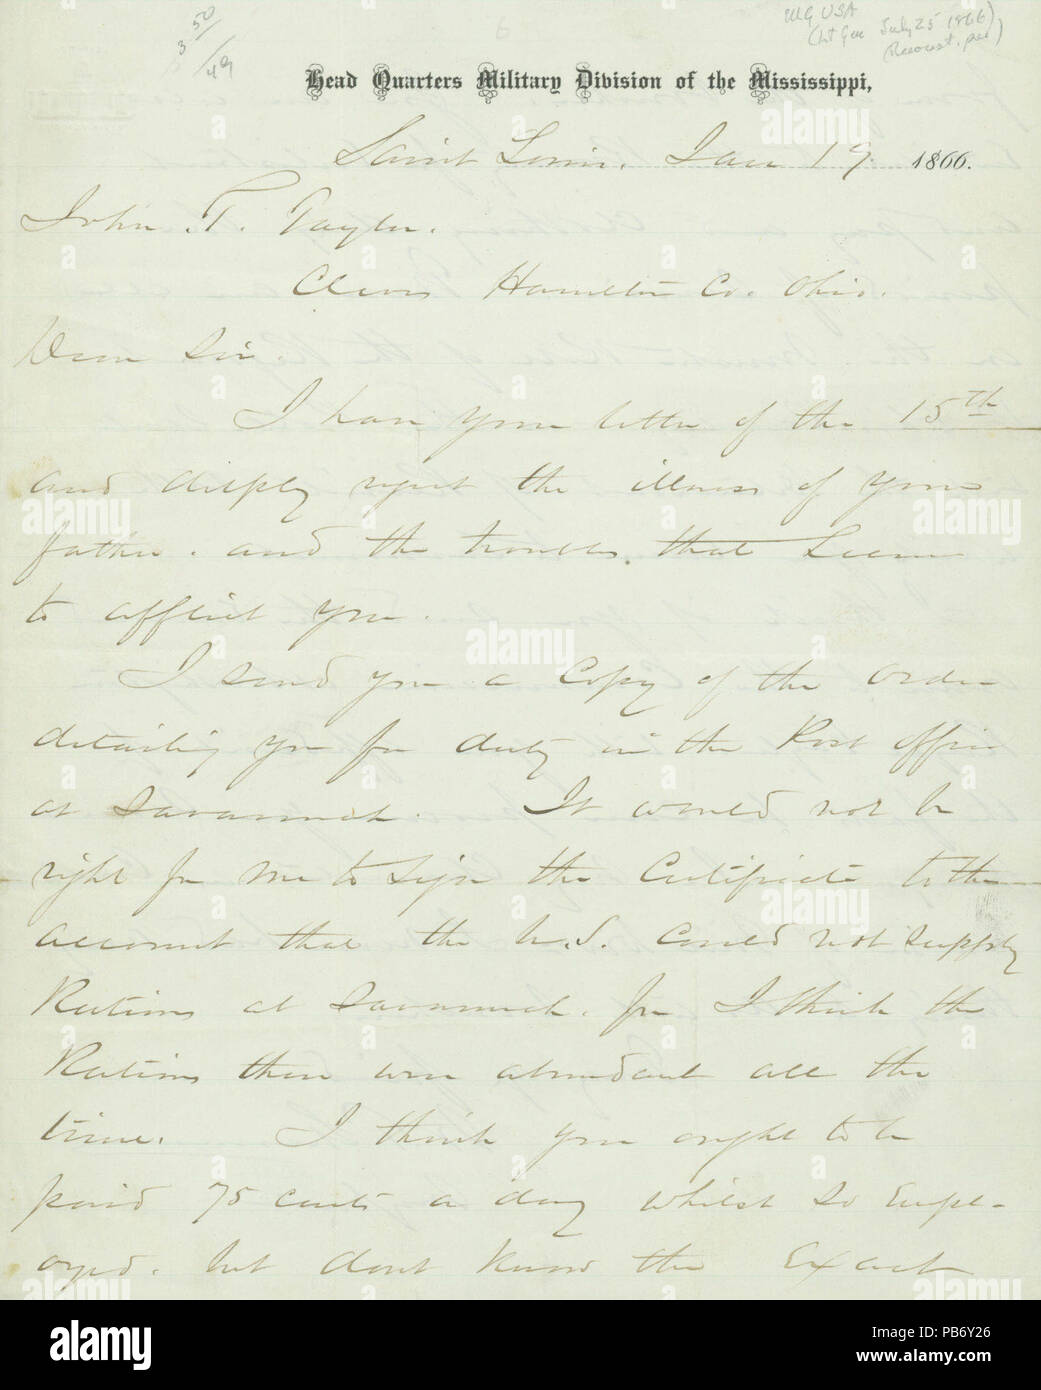 3 50/49
MG USA
(Lt Gen July 25 1866)
Head Quarters Military Division of the Mississippi,
Saint Louis, Jan 19. 1866.
John T. Taylor.
Cleves Hamilton Co. Ohio.
Dear Sir.
I have your letter of the 15th
and deeply regret the illness of your
father. and the troubles that seem
to afflict you.
I send you a Copy of the order
detailing you for duty in the Post office
at Savannah. It would not be
right for me to sign the Certificate to the
account that the U.S. could not supply
Rations at Savannah, for I think the
Rations there were abundant all the
time. I think you ought to be
paid 75 cents a day whilst so empl-
oyed. but dont know the Exact
alamy
alamy stock photo
PB6Y26
www.alamy.com